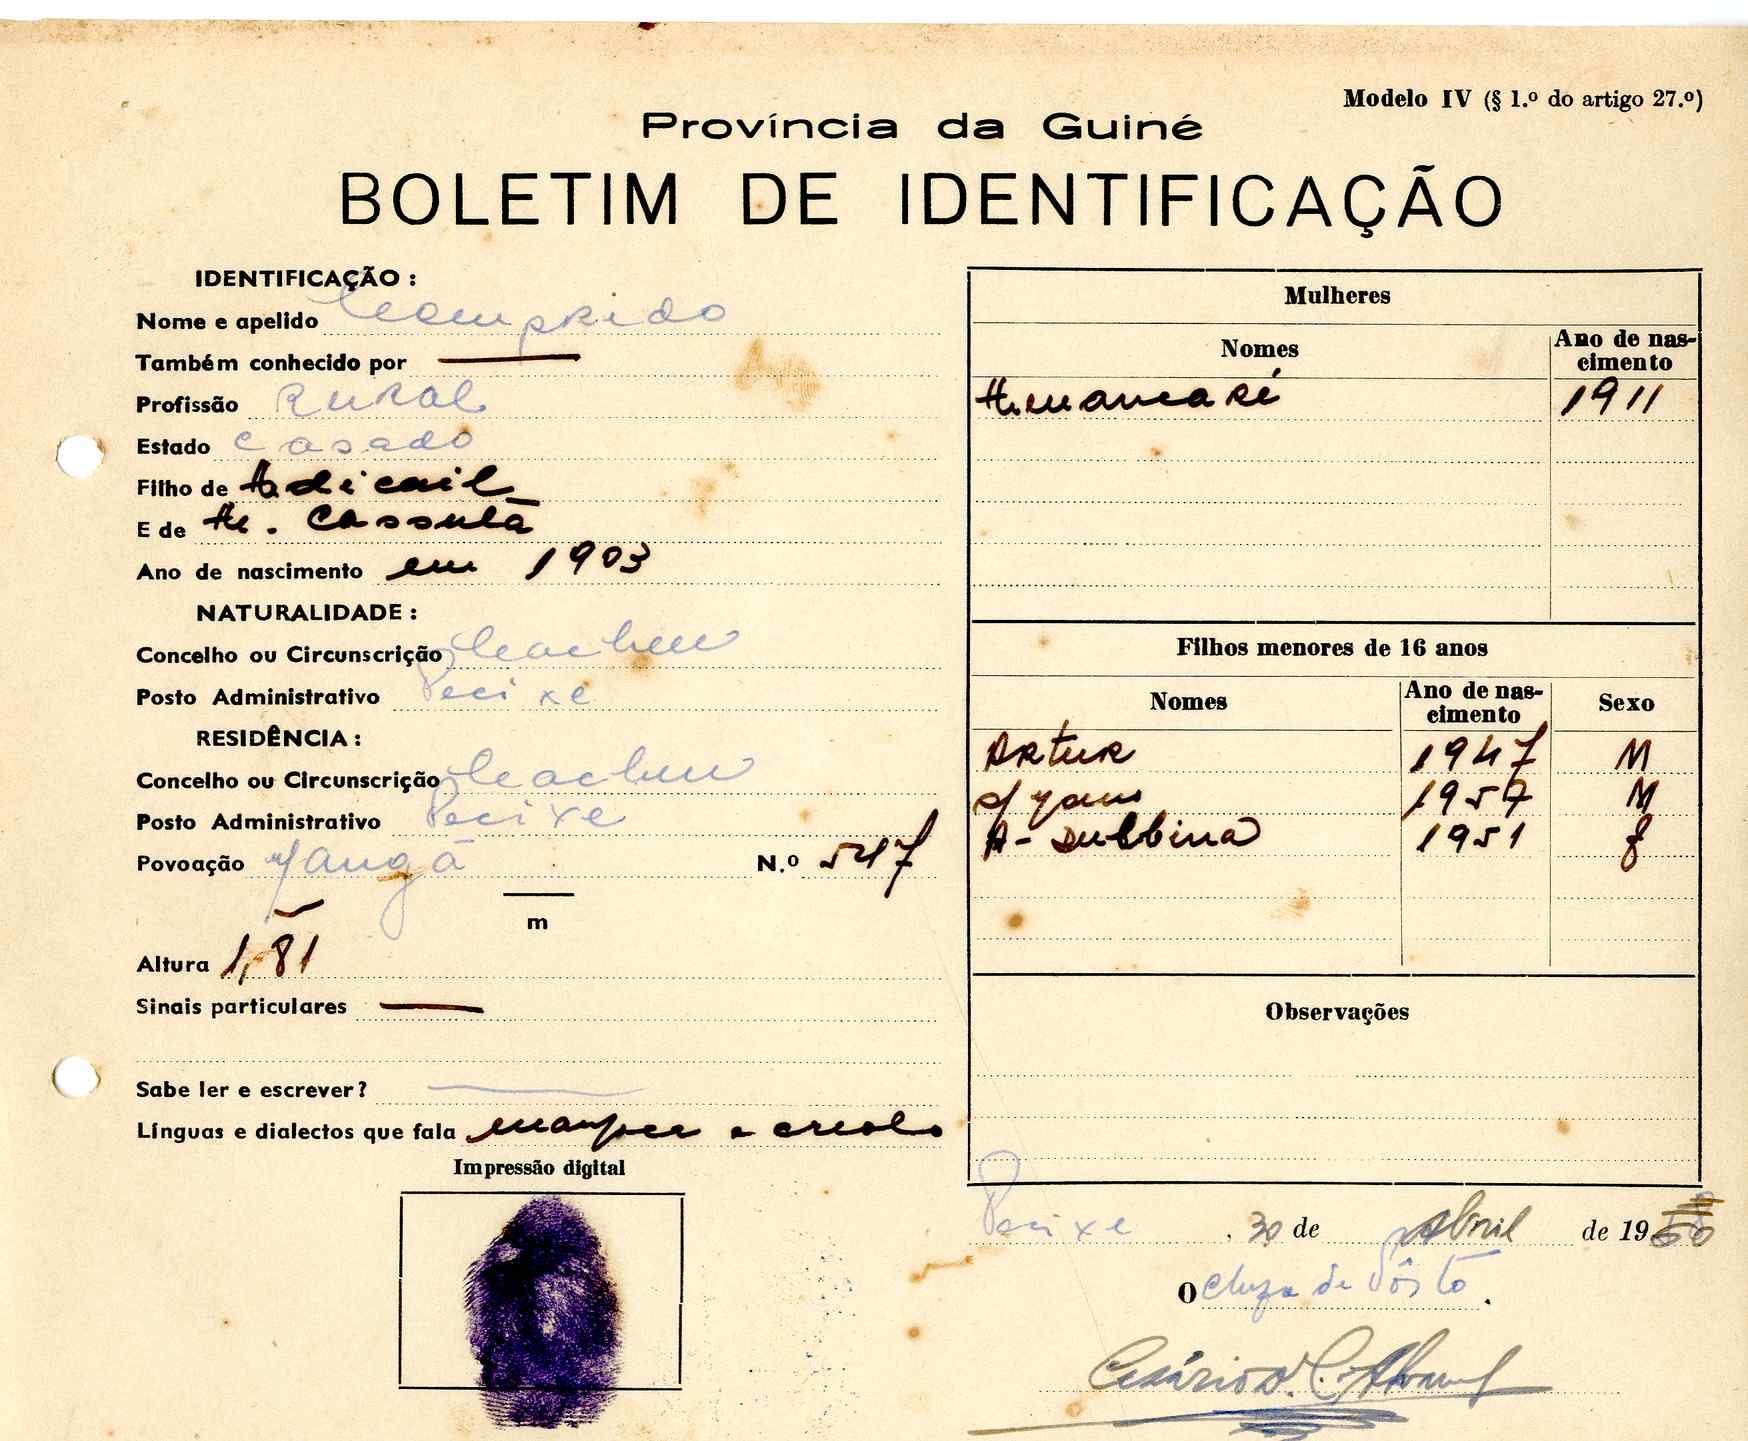 Modelo IV (§ 1.º do artigo 27.º)
Província da Guiné
BOLETIM DE IDENTIFICAÇÃO
IDENTIFICAÇÃO :
Nome e apelido Comprido
Também conhecido por
Profissão Rural
Estado casado
Filho de
E de
Ano de nascimento em 1903
NATURALIDADE :
Concelho ou Circunscrição Cacheu
Posto Administrativo Pecixe
RESIDÊNCIA :
Concelho ou Circunscrição Cacheu
Posto Administrativo Pecixe
Povoação N.º 547
m
Altura 1,81
Sinais particulares
Sabe ler e escrever?
Línguas e dialectos que fala e creolo
Impressão digital
Mulheres
Nomes Ano de nas-
cimento
1911
Filhos menores de 16 anos
Nomes Ano de nas-
cimento Sexo
Artur 1947 M
1957 M
1951 f
Observações
Pecixe, 30 de Abril de 19
O chefe de Pôsto.